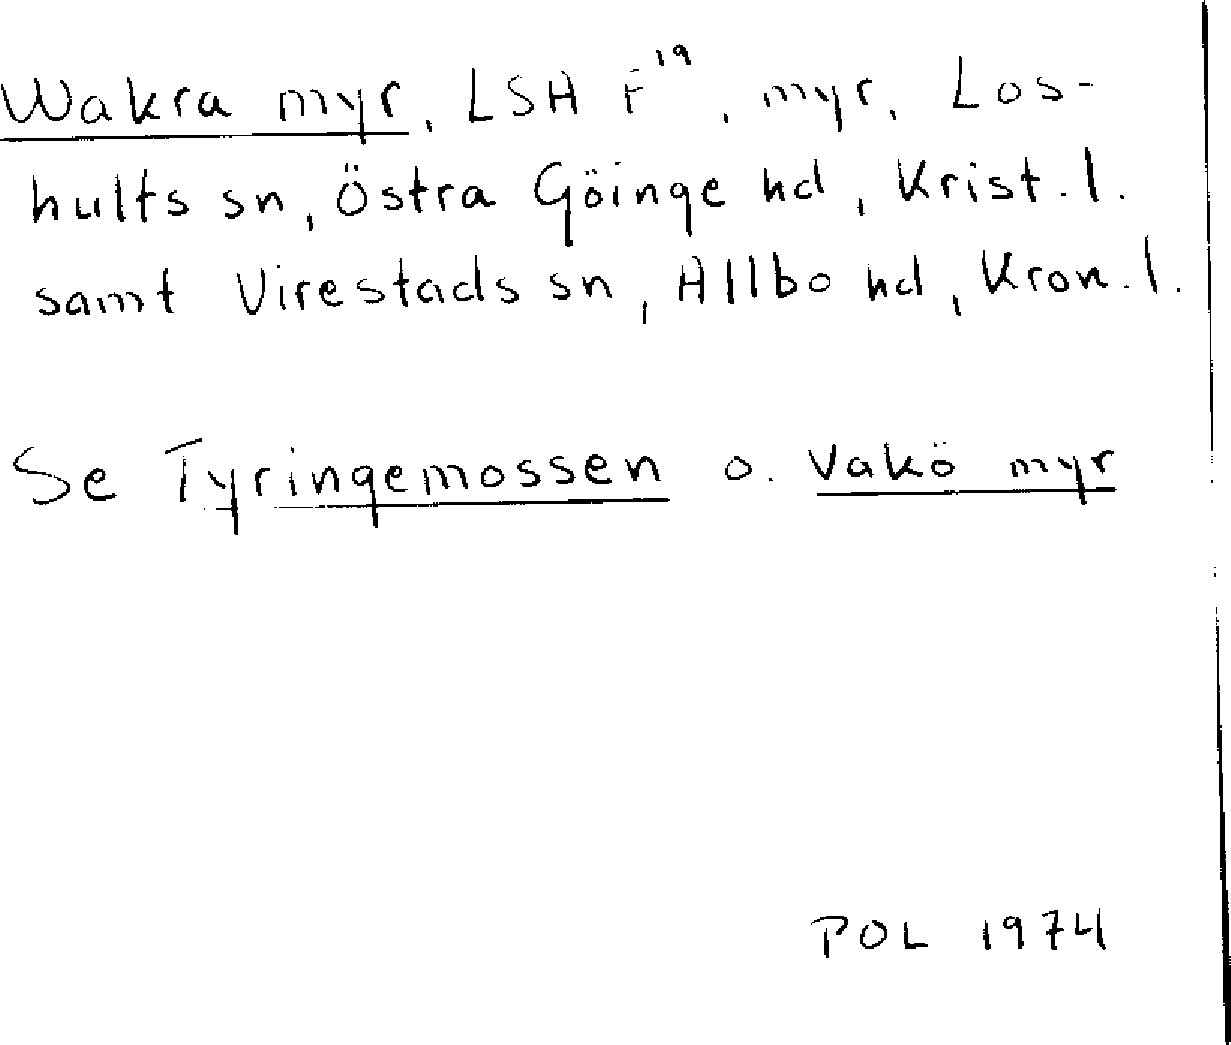 Wakra myr, LSH F¹⁹, myr, Los-
hults sn, Östra Göinge hd, Krist.l.
samt Virestads sn, Allbo hd, Kron.l.
Se Tyringemossen o. Vakö myr
POL 1974